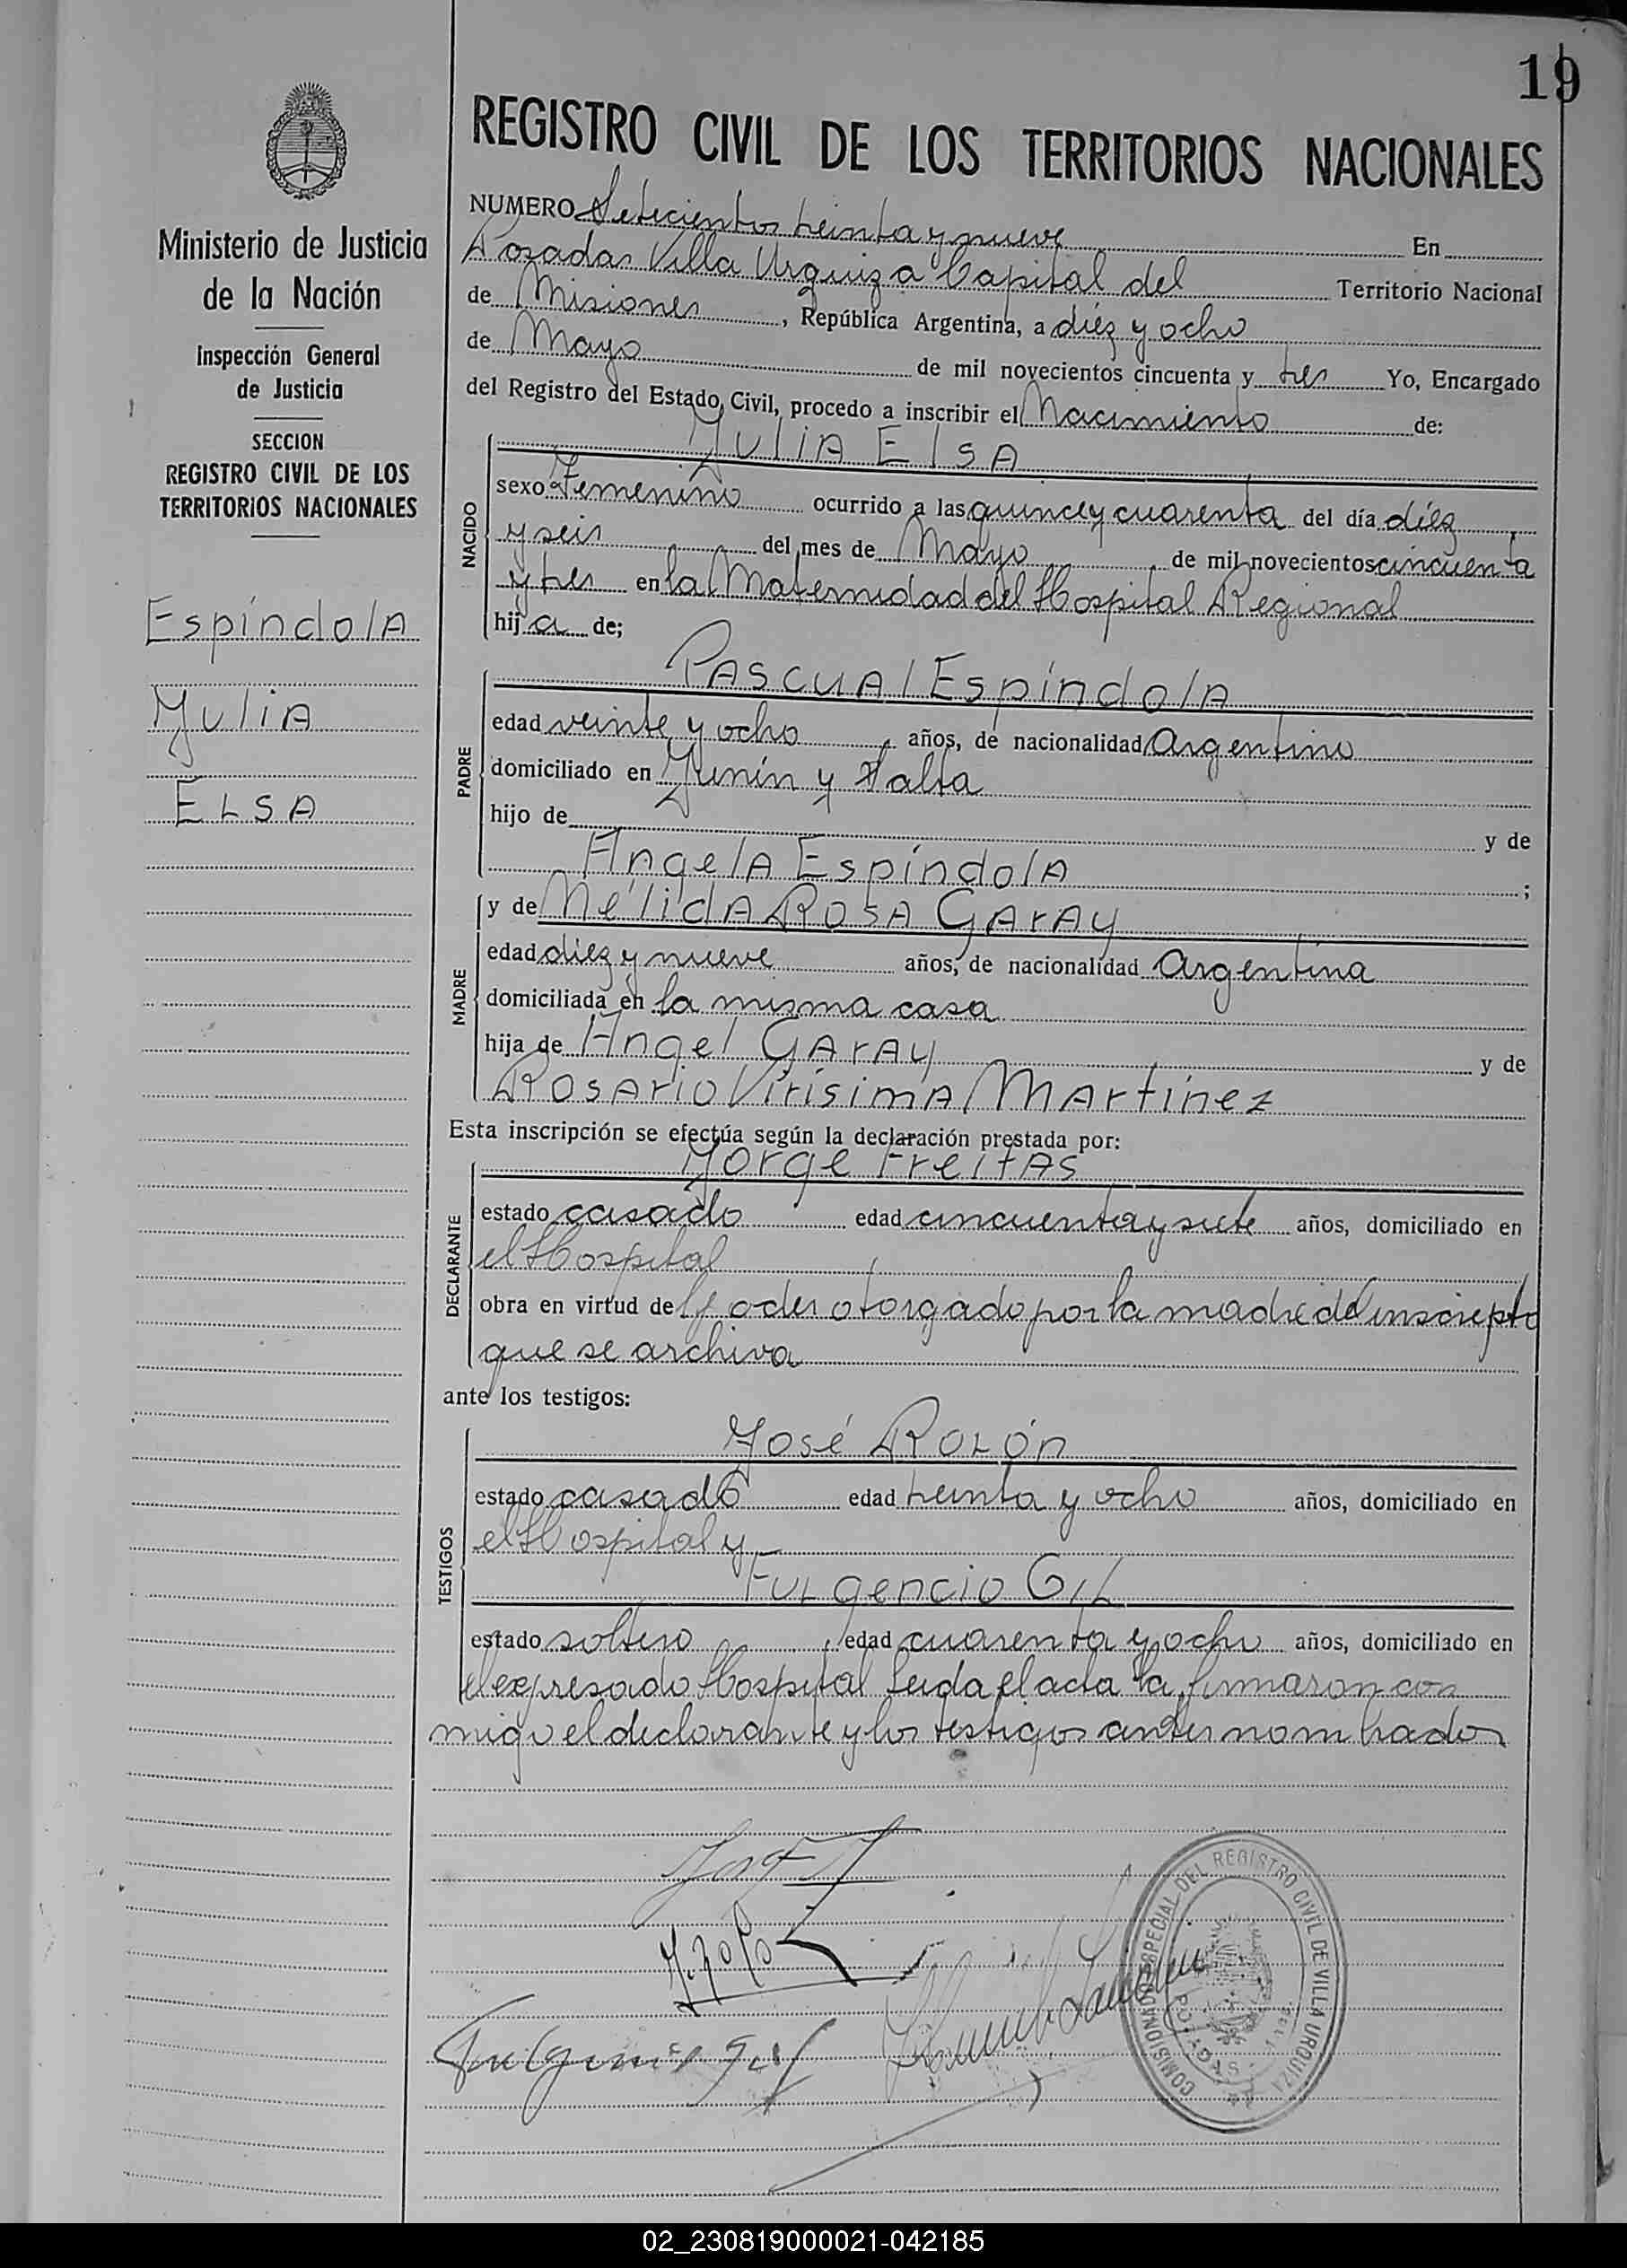 19
REGISTRO CIVIL DE LOS TERRITORIOS NACIONALES
Ministerio de Justicia
de la Nación
Inspección General
de Justicia
SECCION
REGISTRO CIVIL DE LOS
TERRITORIOS NACIONALES
EspíndolA
JuliA
ELSA
NUMERO Setecientos treinta y nueve En
Posadas Villa Urquiza Capital del Territorio Nacional
de Misiones, República Argentina, a diéz y ocho
de Mayo de mil novecientos cincuenta y tres Yo, Encargado
del Registro del Estado Civil, procedo a inscribir el Nacimiento de:
JuliA ElSA
NACIDO
sexo Femenino ocurrido a las quince y cuarenta del día diéz
y seis del mes de Mayo de mil novecientos cincuenta
y tres en la Maternidad del Hospital Regional
hija de;
PADRE
PAscuAl EspíndolA
edad veinte y ocho años, de nacionalidad Argentino
domiciliado en Junín y Salta
hijo de y de
AngelA EspíndolA;
MADRE
y de NélidA RosA GArAy
edad diez y nueve años, de nacionalidad Argentina
domiciliada en la misma casa
hija de Angel GArAy y de
RosArio VirísimA MArtínez
Esta inscripción se efectúa según la declaración prestada por:
DECLARANTE
Jorge FreitAs
estado casado edad cincuenta y siete años, domiciliado en
el Hospital
obra en virtud de Poder otorgado por la madre del inscripto
que se archiva
ante los testigos:
TESTIGOS
José RoLón
estado casado edad treinta y ocho años, domiciliado en
el Hospital y
FuLgencio GiL
estado soltero edad cuarenta y ocho años, domiciliado en
el expresado Hospital Leida el acta la firmaron con
migo el declarante y los testigos antes nombrados
COMISIONADO ESPECIAL DEL REGISTRO CIVIL DE VILLA URQUIZA
Fulgencio Gil
02_230819000021-042185